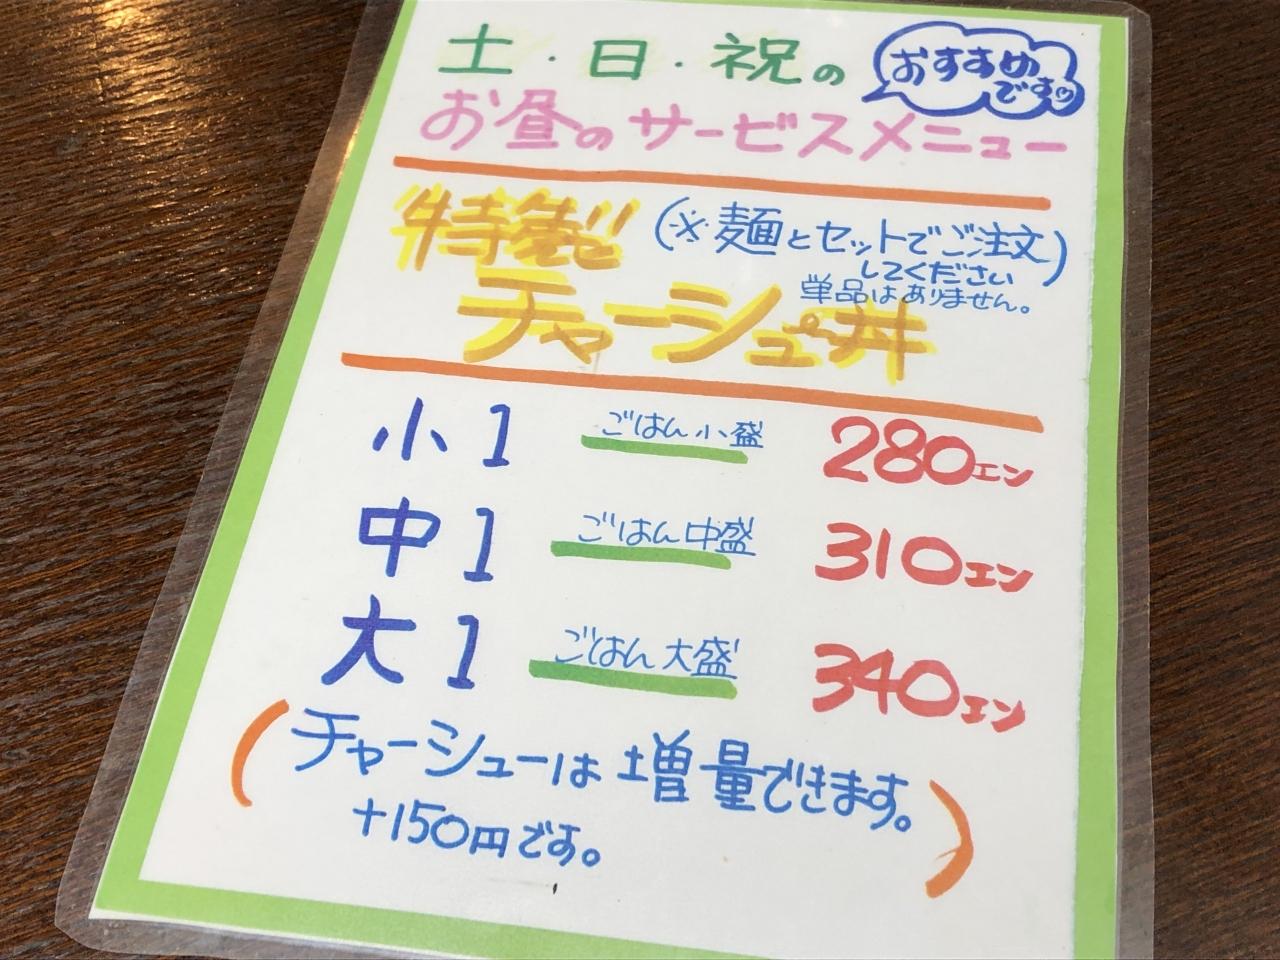 土・日・祝の
おすすめ
です
お昼のサービスメニュー
特製
(※麺とセットでご注文
してください)
単品はありません。
チャーシュー丼
小1 ごはん小盛 280エン
中1 ごはん中盛 310エン
大1 ごはん大盛 340エン
(チャーシューは増量できます。
+150円です。)